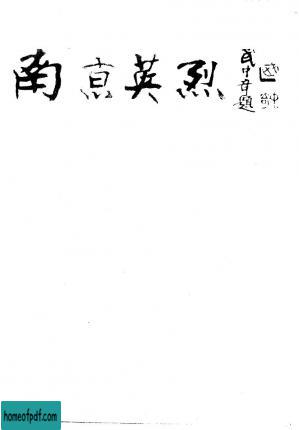 南京英烈
武中奇題
homeofpdf.com